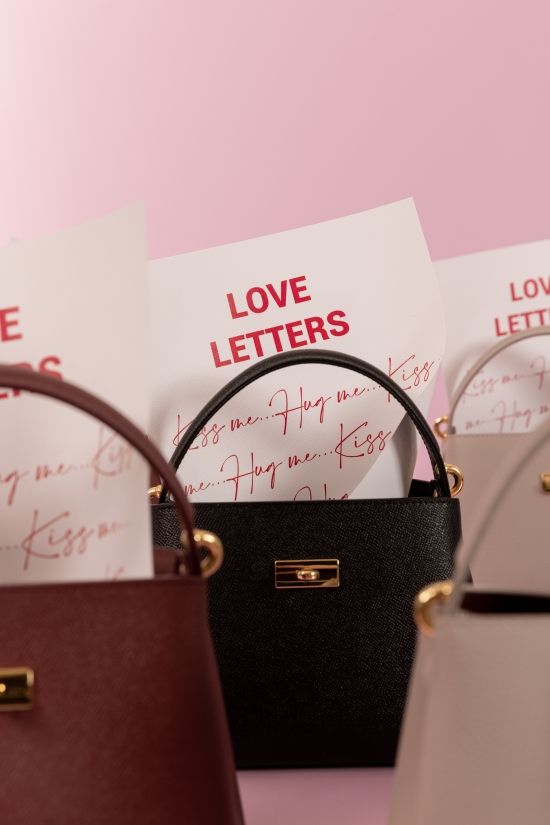 LOVE
LETTERS
Kiss me...Hug me...Kiss
me...Hug me...Kiss
LOVE
Hug me...Kiss
Kiss me
Kiss me...Hug
me...Hug me